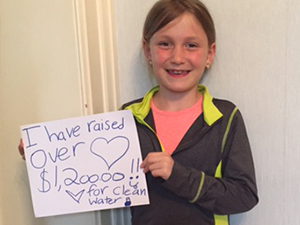 I have raised
Over
$1,200.00!!
for clean
water